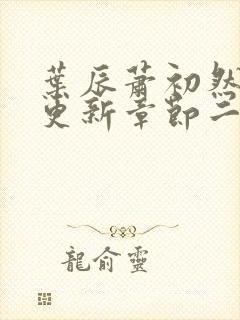 葉辰蕭初然
更新章節二
龍俞靈